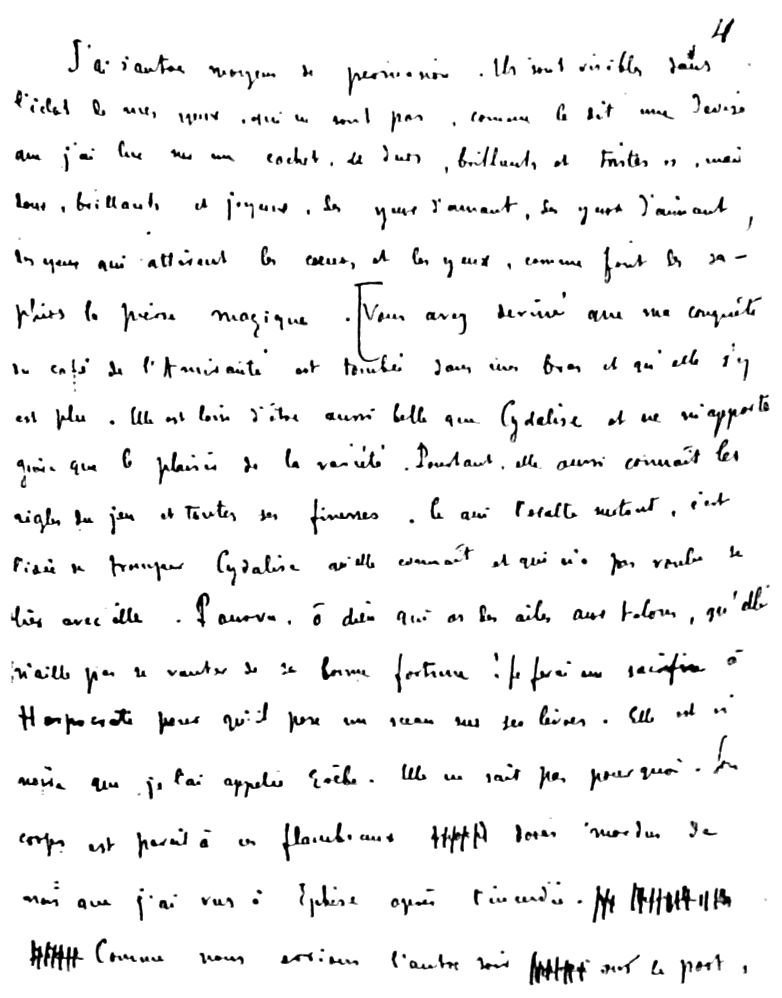 4
J'ai d'autres moyens de persuasion. Ils sont visibles dans
l'éclat de mes yeux, qui ne sont pas, comme le dit une devise
que j'ai lue sur un cachet, de durs, brillants et tristes », mais
doux, brillants et joyeux, des yeux d'amant, des yeux d'aimant,
des yeux qui attirent les cœurs, et les yeux, comme font les sa-
phirs la pierre magique. [Vous avez deviné que ma conquête
du café de l'Amirauté est tombée dans mes bras et qu'elle s'y
est plu. Elle est loin d'être aussi belle que Cydalise et ne m'apporte
guère que le plaisir de la variété. Pourtant, elle aussi connaît les
règles du jeu et toutes ses finesses. Ce qui l'exalte surtout, c'est
l'idée de tromper Cydalise qu'elle connaît et qui n'a pas voulu se
lier avec elle. Pourvu, ô dieu qui as des ailes aux talons, qu'elle
n'aille pas se vanter de sa bonne fortune ! Je ferai un sacrifice à
Harpocrate pour qu'il pose un sceau sur ses lèvres. Elle est si
noire que je l'ai appelée Erèbe. Elle ne sait pas pourquoi. Son
corps est pareil à ces flambeaux dorés mordus de
noir que j'ai vus à Ephèse après l'incendie.
Comme nous errions l'autre soir sur le port,